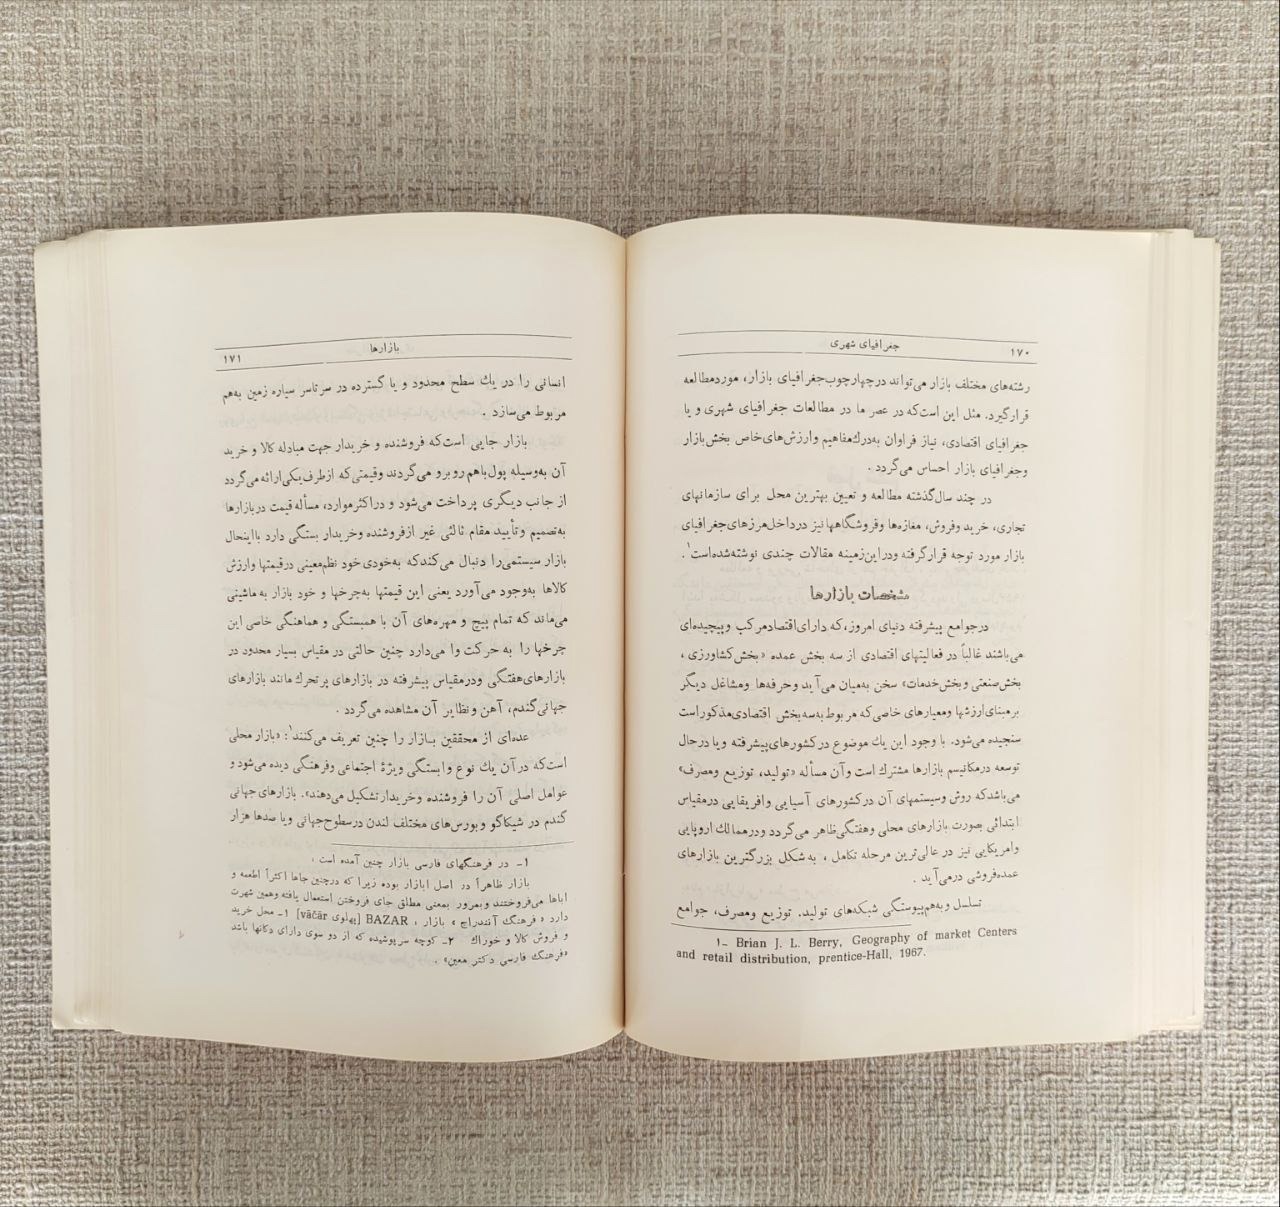 ۱۷۰
جغرافیای شهری
رشته‌های مختلف بازار می‌تواند در چهارچوب جغرافیای بازار، مورد مطالعه
قرار گیرد. مثل این است که در عصر ما در مطالعات جغرافیای شهری و یا
جغرافیای اقتصادی، نیاز فراوان به درك مفاهیم وارزش‌های خاص بخش بازار
وجغرافیای بازار احساس می‌گردد .
در چند سال گذشته مطالعه و تعیین بهترین محل برای سازمانهای
تجاری، خرید وفروش، مغازه‌ها وفروشگاهها نیز در داخل مرزهای جغرافیای
بازار مورد توجه قرار گرفته ودر این زمینه مقالات چندی نوشته شده است۱.
مشخصات بازارها
در جوامع پیشرفته دنیای امروز، که دارای اقتصاد مرکب وپیچیده‌ای
می‌باشند غالباً در فعالیتهای اقتصادی از سه بخش عمده «بخش کشاورزی ،
بخش صنعتی وبخش خدمات» سخن به‌میان می‌آید وحرفه‌ها ومشاغل دیگر
بر مبنای ارزشها ومعیارهای خاصی که مربوط به سه بخش اقتصادی مذکور است
سنجیده می‌شود. با وجود این یك موضوع در کشورهای پیشرفته ویا در حال
توسعه در مکانیسم بازارها مشترك است وآن مسأله «تولید، توزیع ومصرف»
می‌باشد که روش وسیستمهای آن در کشورهای آسیایی وافریقایی در مقیاس
ابتدائی بصورت بازارهای محلی وهفتگی ظاهر می‌گردد ودر ممالك اروپایی
وامریکایی نیز در عالی‌ترین مرحله تکامل ، به شکل بزرگترین بازارهای
عمده فروشی درمی‌آید .
تسلسل وبه‌هم پیوستگی شبکه‌های تولید. توزیع ومصرف، جوامع
۱- Brian J. L. Berry, Geography of market Centers
and retail distribution, prentice-Hall, 1967.
بازارها
۱۷۱
انسانی را در یك سطح محدود و یا گسترده در سرتاسر سیاره زمین به‌هم
مربوط می‌سازد .
بازار جایی است که فروشنده و خریدار جهت مبادله کالا و خرید
آن به‌وسیله پول باهم روبرو می‌گردند وقیمتی که از طرف یکی ارائه می‌گردد
از جانب دیگری پرداخت می‌شود و در اکثر موارد، مسأله قیمت در بازارها
به‌تصمیم وتأیید مقام ثالثی غیر از فروشنده وخریدار بستگی دارد بااینحال
بازار سیستمی را دنبال می‌کند که به‌خودی خود نظم معینی در قیمتها وارزش
کالاها به‌وجود می‌آورد یعنی این قیمتها به چرخها و خود بازار به ماشینی
می‌ماند که تمام پیچ و مهره‌های آن با همبستگی و هماهنگی خاصی این
چرخها را به حرکت وا می‌دارد چنین حالتی در مقیاس بسیار محدود در
بازارهای هفتگی ودر مقیاس پیشرفته در بازارهای پرتحرك مانند بازارهای
جهانی گندم، آهن ونظایر آن مشاهده می‌گردد .
عده‌ای از محققین بازار را چنین تعریف می‌کنند۱: «بازار محلی
است که در آن یك نوع وابستگی ویژهٔ اجتماعی وفرهنگی دیده می‌شود و
عوامل اصلی آن را فروشنده وخریدار تشکیل می‌دهند». بازارهای جهانی
گندم در شیکاگو و بورس‌های مختلف لندن در سطوح جهانی ویا صدها هزار
۱- در فرهنگهای فارسی بازار چنین آمده است ،
بازار ظاهراً در اصل ابازار بوده زیرا که درچنین جاها اکثراً اطعمه و
اباها می‌فروختند وبمرور بمعنی مطلق جای فروختن استعمال یافته وهمین شهرت
دارد «فرهنگ آنندراج » بازار ، BAZAR [پهلوی vāčār] ۱- محل خرید
و فروش کالا و خوراك ۲- کوچه سرپوشیده که از دو سوی دارای دکانها باشد
«فرهنگ فارسی دکتر معین» .